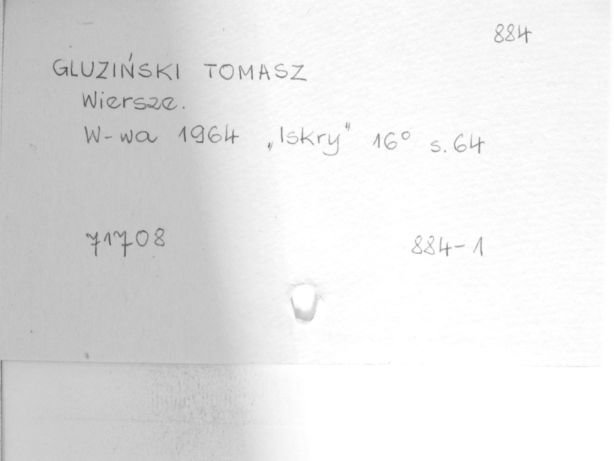 884
GLUZIŃSKI TOMASZ
Wiersze.
W-wa 1964 „Iskry” 16° s. 64
71708 884-1